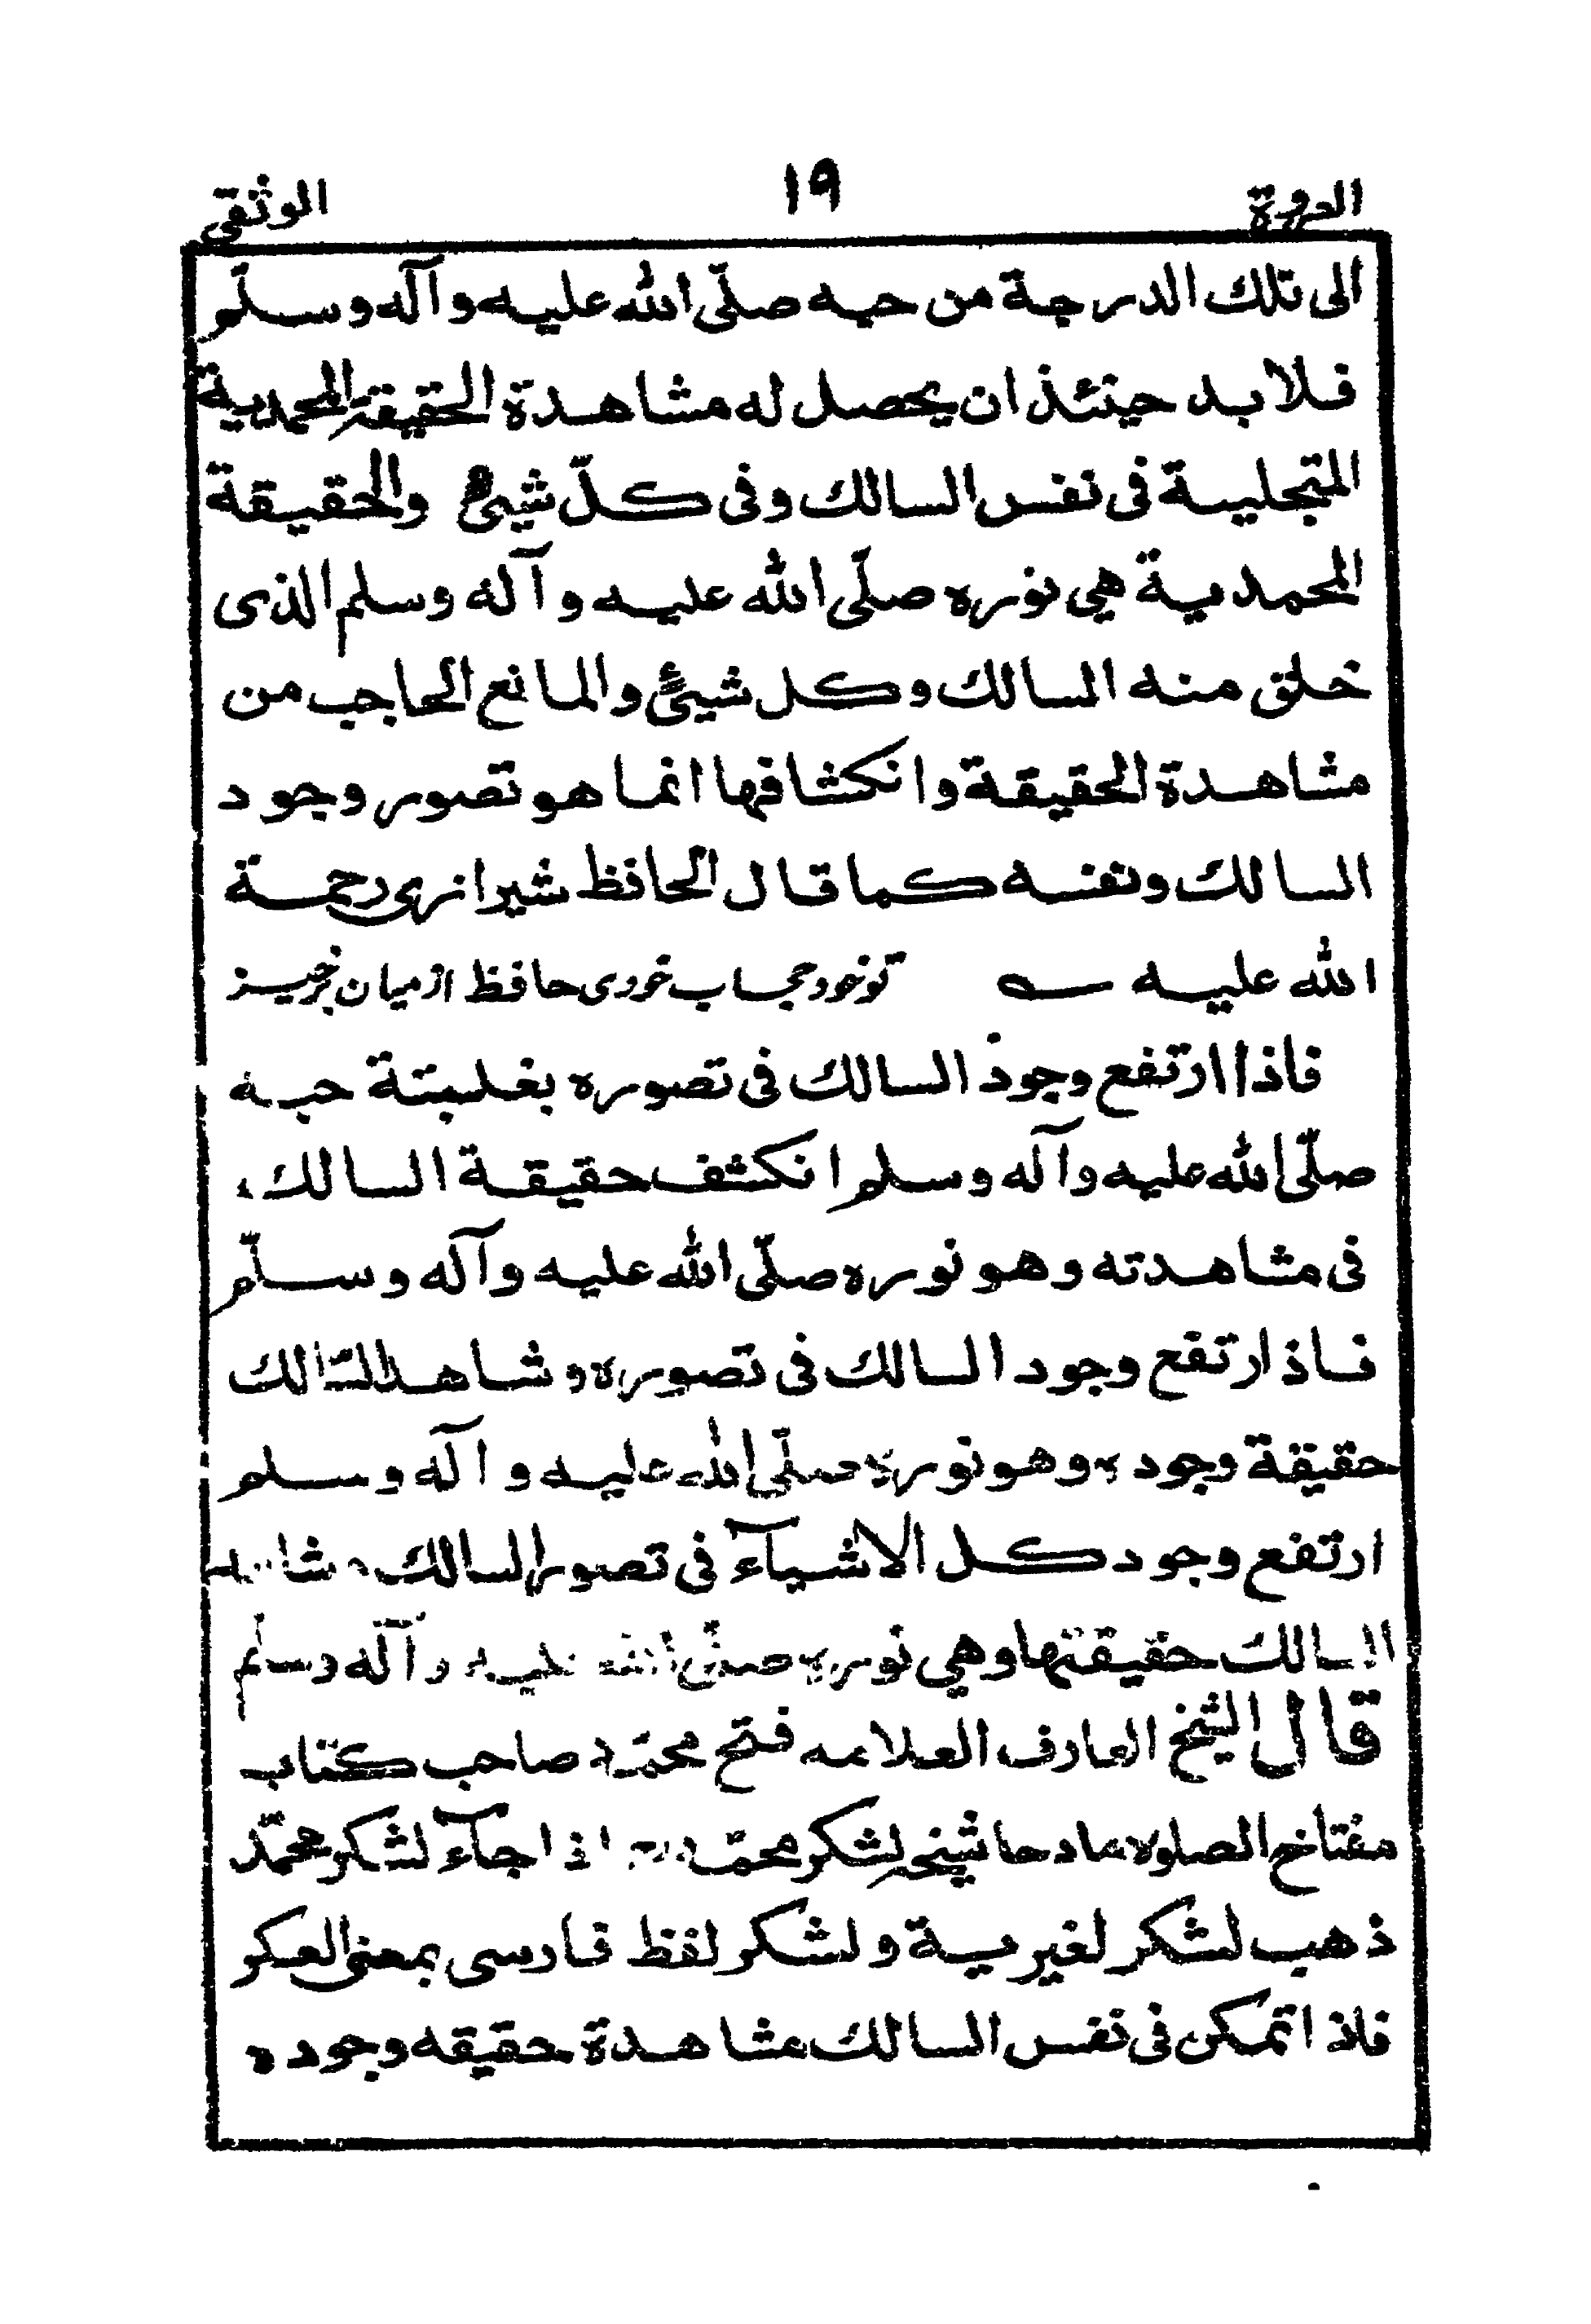 العروة ١٩ الوثقى
الى تلك الدرجة من حبه صلّى الله عليه وآله وسلّم
فلا بد حينئذ ان يحصل له مشاهدة الحقيقة المحمدية
المتجلية فى نفس السالك وفى كلّ شيئ والحقيقة
المحمدية هي نوره صلّى الله عليه وآله وسلم الذى
خلق منه السالك وكل شيئ والمانع الحاجب من
مشاهدة الحقيقة وانكشافها انما هو تصور وجود
السالك ونفسه كما قال الحافظ شيرازى رحمة
الله عليه تو خود حجاب خودى حافظ از ميان برخيز
فاذا ارتفع وجود السالك فى تصوره بغلبتة حبه
صلّى الله عليه وآله وسلم انكشف حقيقة السالك
فى مشاهدته وهو نوره صلّى الله عليه وآله وسلّم
فاذ ارتفع وجود السالك فى تصوره وشاهد السّالك
حقيقة وجوده وهو نوره صلّى الله عليه وآله وسلم
ارتفع وجود كل الاشيآء فى تصور السالك
السالك حقيقتها وهي نوره صلّى الله عليه وآله وسلم
قال الشيخ العارف العلامه فتح محمّد صاحب كتاب
مفتاح الصلوة مادحا شيخه لشكر محمّد اذ اجآء لشكر محمّد
ذهب لشكر لغيرية ولشكر لفظ فارسى بمعنى العسكر
فاذ اتمكن فى نفس السالك مشاهدة حقيقه وجوده